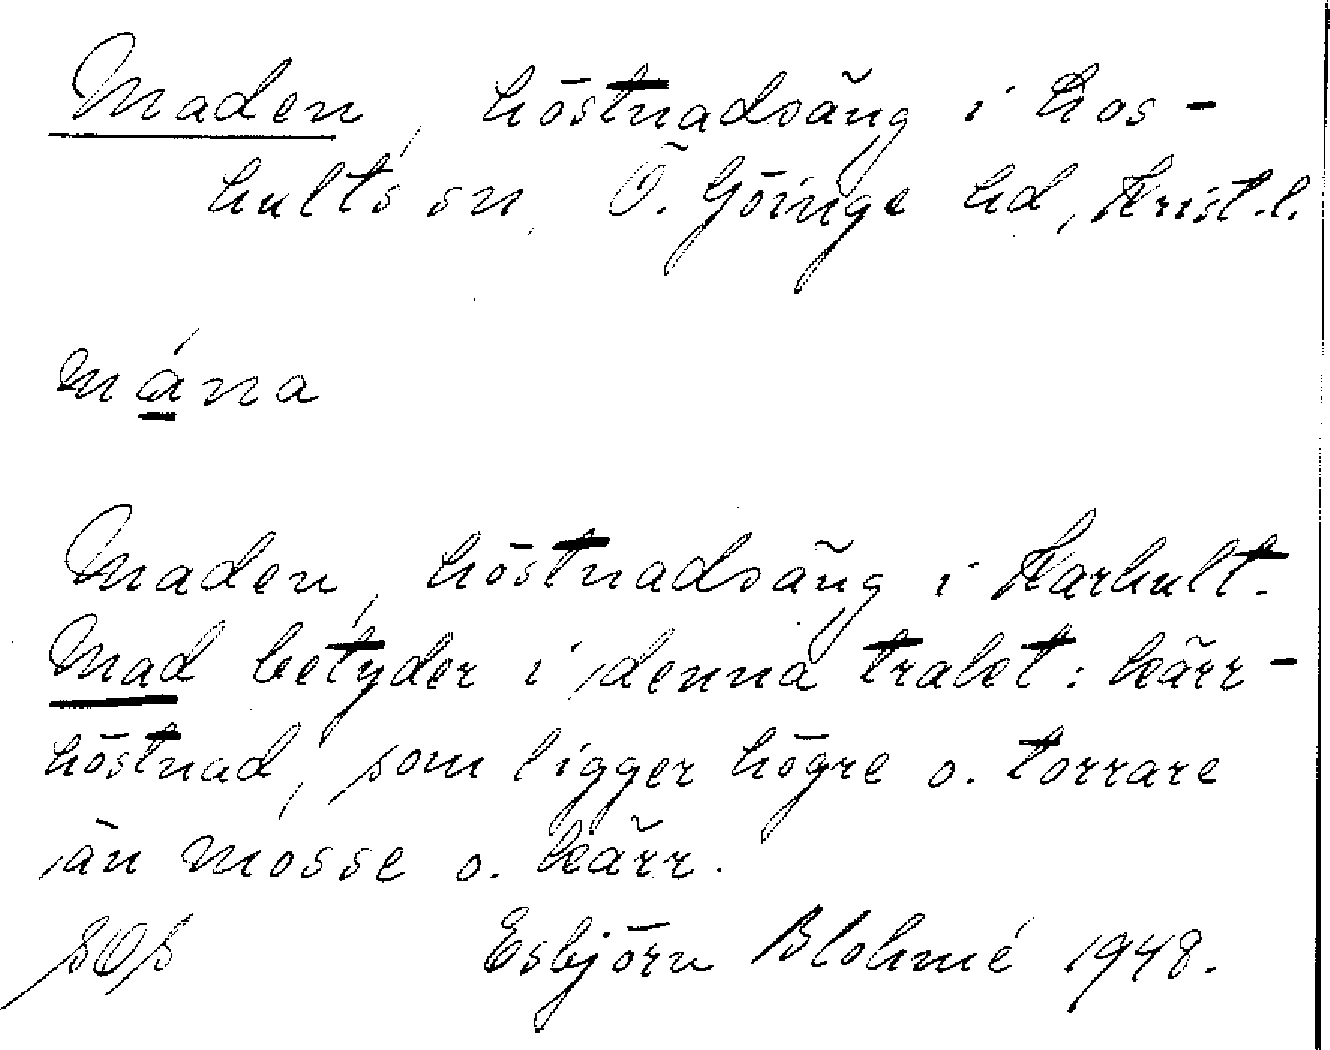 Maden, höstnadsäng i Los-
hults sn, Ö. Göinge hd, Krist.l.
mána
Maden, höstnadsäng i Karhult.
Mad betyder i denna trakt: kärr-
höstnad, som ligger högre o. torrare
än mosse o. kärr.
SOS Esbjörn Blohmé 1948.